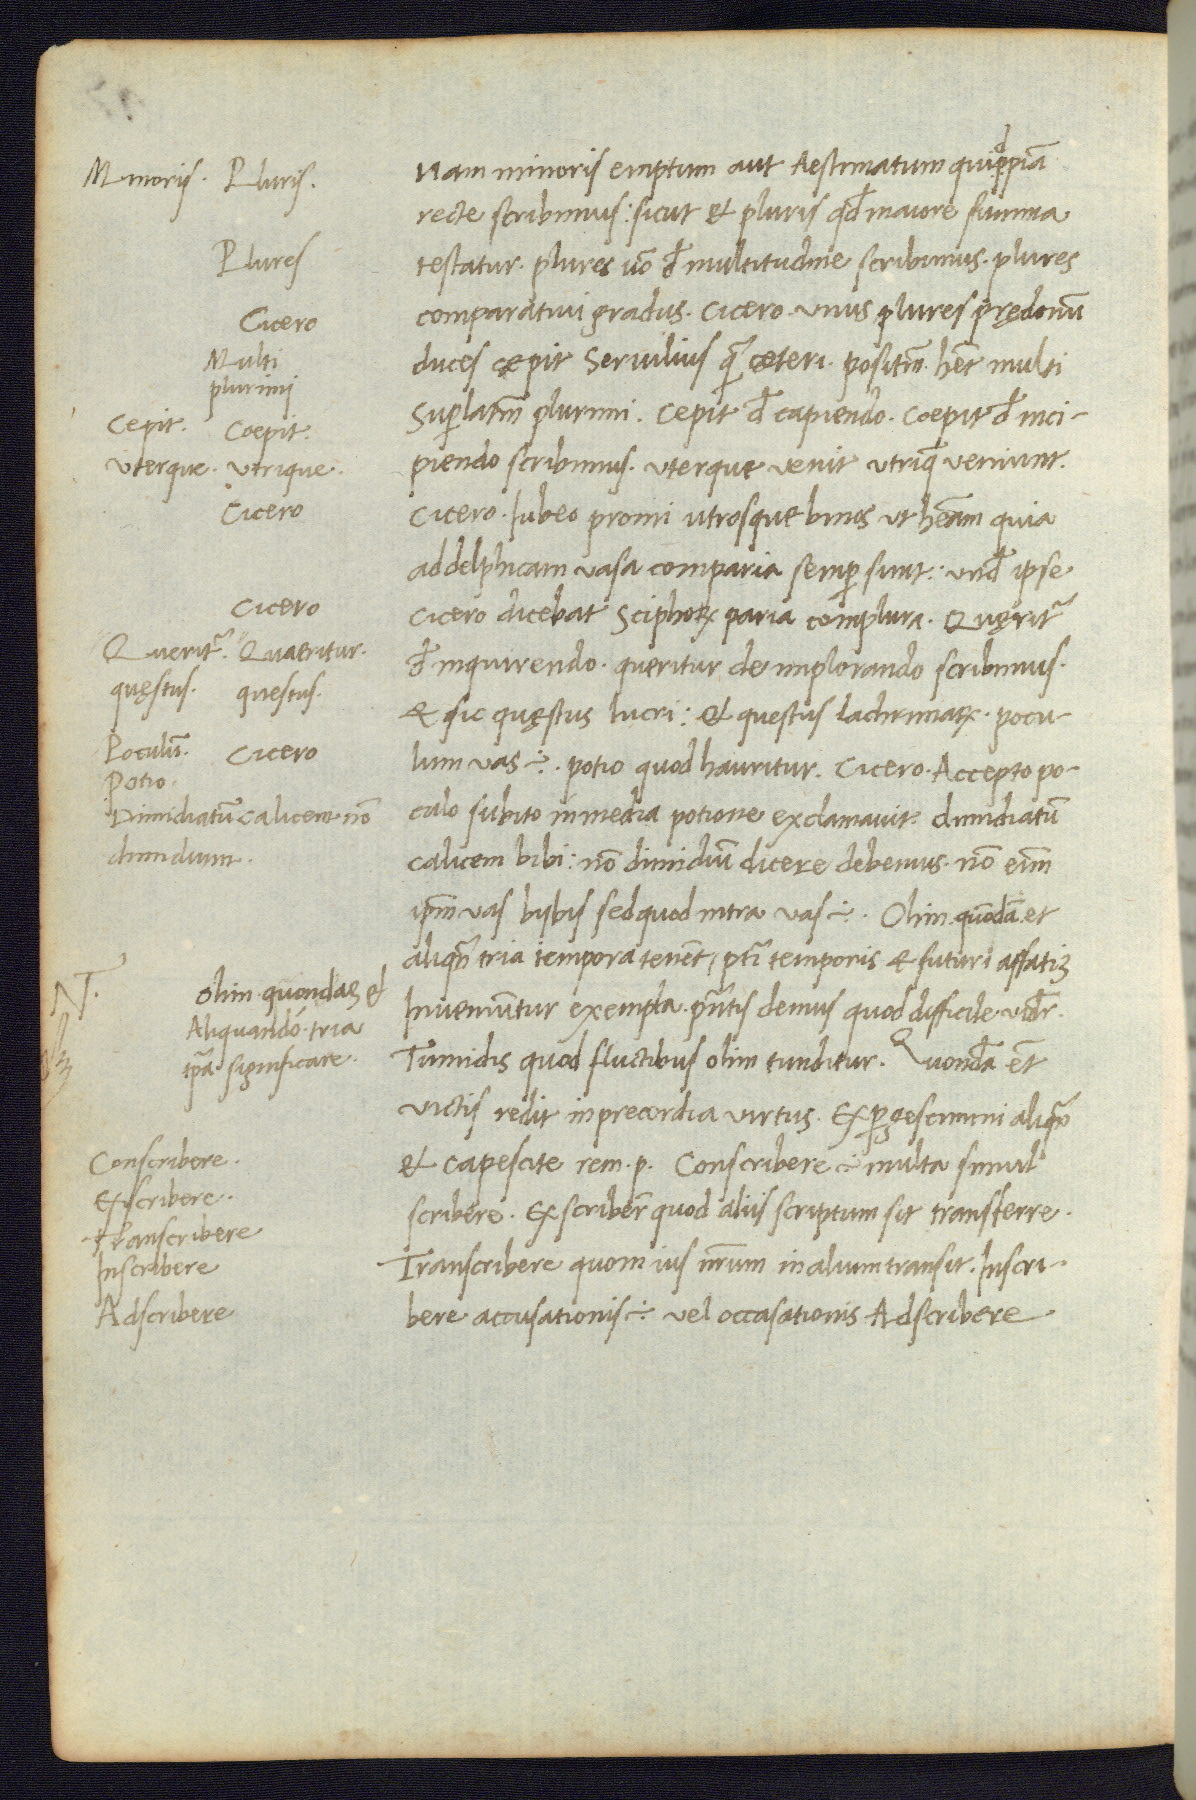 Minoris. Pluris.
Plures
Cicero
Multi
plurimi
Cepit. Coepit.
Vterque. Vtrique.
Cicero
Cicero
Querit᷑. Quaeritur.
quęstus. questus.
Poculũ. Cicero
Potio.
Dimidiatũ calicem nõ
dimidium.
N.
olim quondaꝫ et
Aliquando tria
tp̃a significare.
Conscribere.
Exscribere.
Transcribere
Inscribere
Adscribere
Nam minoris emptum aut Aestimatum quidpiã
recte scribimus: sicut et pluris qđ maiore summa
testatur. plures uõ đ multitudine scribimus. plures
comparatiui gradus. Cicero. Vnus plures prędonũ
duces cępit Seruilius q̃ cęteri. positm̃. hẽt multi
Suꝑlatm̃ plurimi. Cepit đ capiendo. Coepit đ inci-
piendo scribimus. Vterque venit vtriq̃ veniunt.
Cicero. Iubeo promi utrosque binos ut hẽam quia
ad delphicam vasa comparia semꝑ sunt: vnđ ipse
Cicero dicebat Sciphoꝝ paria complura. Quęrit᷑
đ inquirendo. queritur de implorando scribimus.
& sic quęstus lucri: et questus lachrimaꝝ. pocu-
lum vas ÷. potio quod hauritur. Cicero. Accepto po-
culo subito in media potione exclamauit. dimidiatũ
calicem bibi: nõ dimidiũ dicere debemus. nõ eĩm
ipm̃ vas bibis sed quod intra vas ÷. Olim quõdã et
aliqñ tria tempora tenẽt, p̃tĩ temporis & futuri affatiꝫ
Inueniũtur exempla. p̃ntis demus quod difficile vr̃.
Tumidis quod fluctibus olim tunditur. Quondã ẽt
victis redit in precordia virtus. Exꝑgescimini aliqñ
et capescite rem. p. Conscribere ÷ multa simul
scribere. Exscriber̃ quod aliis scriptum sit transferre.
Transcribere quom ius nr̃um in alium transit. Inscri-
bere accusationis ÷ vel occasationis Adscribere